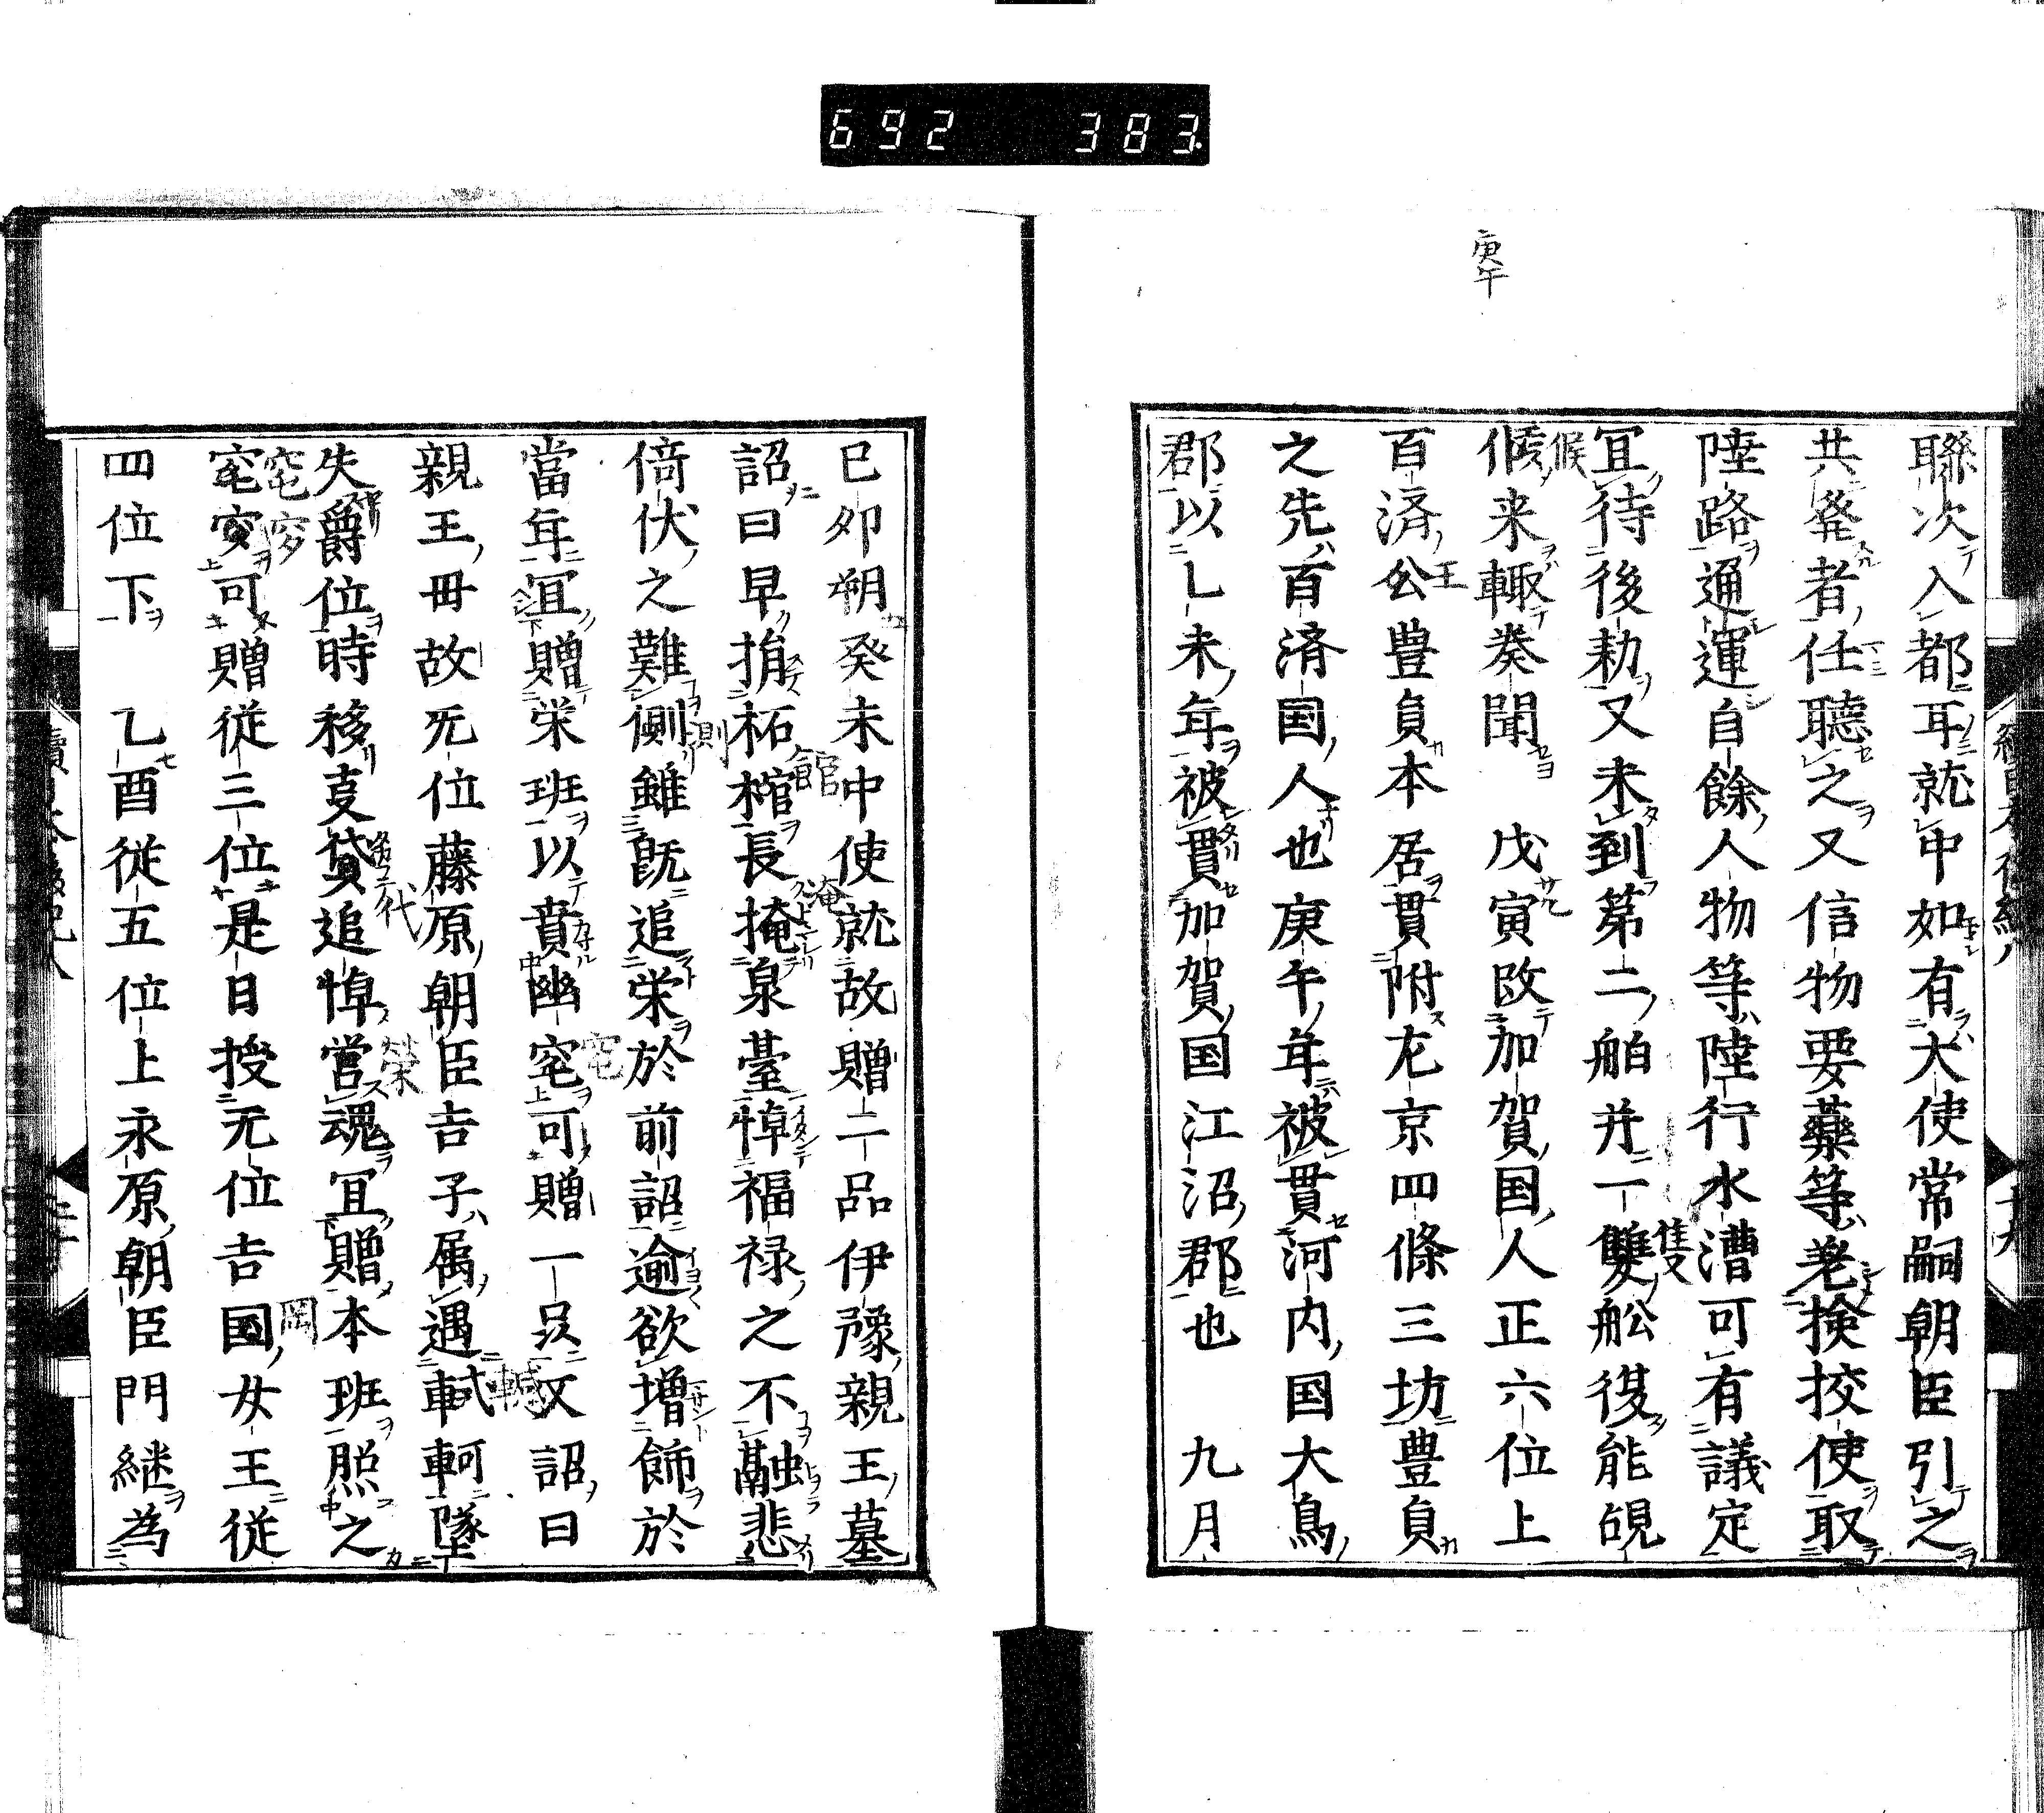 692 383
庚午
聯次入都耳就中如有大使常嗣朝臣引之
共發者任聽之又信物要藥等差検挍使取
陸路通運自餘人物等陸行水漕可有議定
冝待後勅又未到第二舶并一雙舩復能覘
候来輙奏聞　戊寅改加賀国人正六位上
百済公豊貟本居貫附左京四條三坊豊貟
之先百済国人也庚午年被貫河内国大鳥
郡以乚未年被貫加賀国江沼郡也　九月
已夘朔癸未中使就故贈二品伊豫親王墓
詔曰早捐柘棺長掩泉臺悼福禄之不融悲
倚伏之難側雖既追栄於前詔逾欲増飾於
當年冝贈栄班以賁幽窀可贈一品又詔曰
親王毋故无位藤原朝臣吉子属遇轗軻墜
失爵位時移㕝貸追悼営魂冝贈本班照之
窀穸可贈従三位是日授无位吉国女王従
四位下　乙酉従五位上永原朝臣門継為